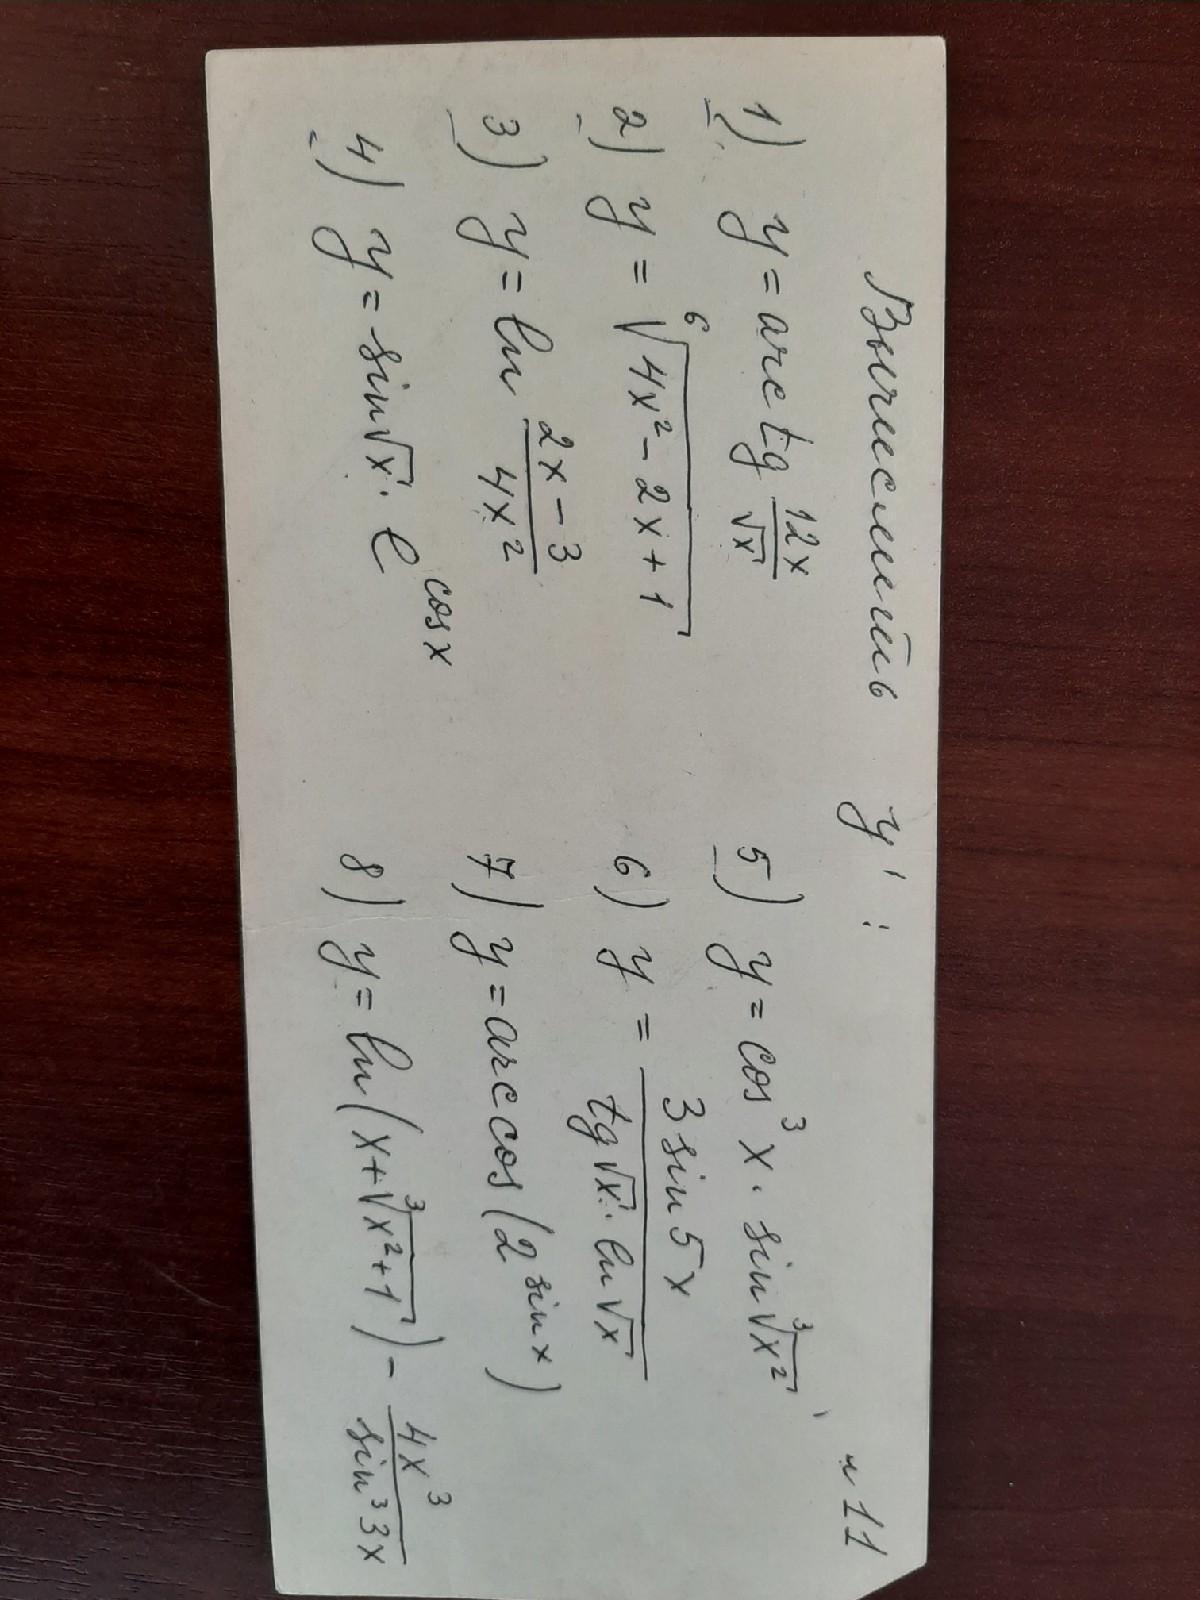 Вычислить y': №11
1) y = arctg 12x/√x
2) y = ⁶√(4x² - 2x + 1)
3) y = ln (2x - 3)/(4x²)
4) y = sin√x · e^(cos x)
5) y = cos³x · sin ³√(x²)
6) y = (3 sin 5x)/(tg√x · ln√x)
7) y = arccos(2^(sin x))
8) y = ln(x + ³√(x² + 1)) - (4x³)/(sin³3x)